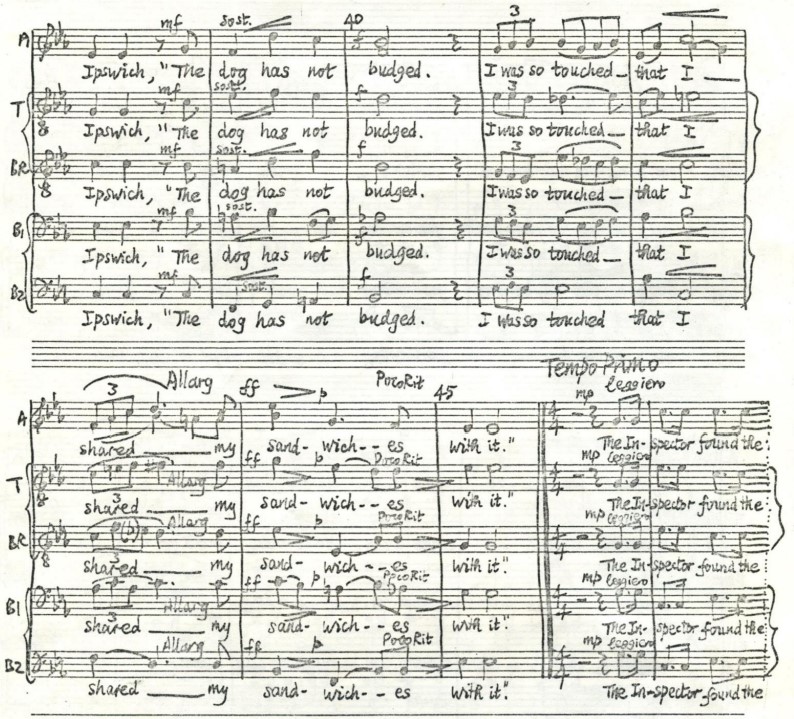 mf sost. 40 3
A f
Ipswich, "The dog has not budged. I was so touched _ that I __
mf sost. f 3
T
8
Ipswich, "The dog has not budged. I was so touched _ that I
mf sost. f 3
BR
8
Ipswich, "The dog has not budged. I was so touched _ that I
mf sost. 3
B1 f
Ipswich, "The dog has not budged. I was so touched _ that I
mf sost. f 3
B2
Ipswich, "The dog has not budged. I was so touched that I
Tempo Primo
3 Allarg ff p Poco Rit 45 mp leggiero
A
shared __ my sand- wich - - es with it." The In-spector found the
ff p Poco Rit mp leggiero
T Allarg
8 3
shared __ my sand- wich - - es with it." The In-spector found the
Allarg ff p Poco Rit mp leggiero
BR
8 3
shared __ my sand- wich - - es with it." The In-spector found the
ff p Poco Rit mp leggiero
B1 3 Allarg
shared __ my sand- wich - - es with it." The In-spector found the
Allarg ff p Poco Rit mp leggiero
B2
shared __ my sand- wich - - es with it." The In-spector found the